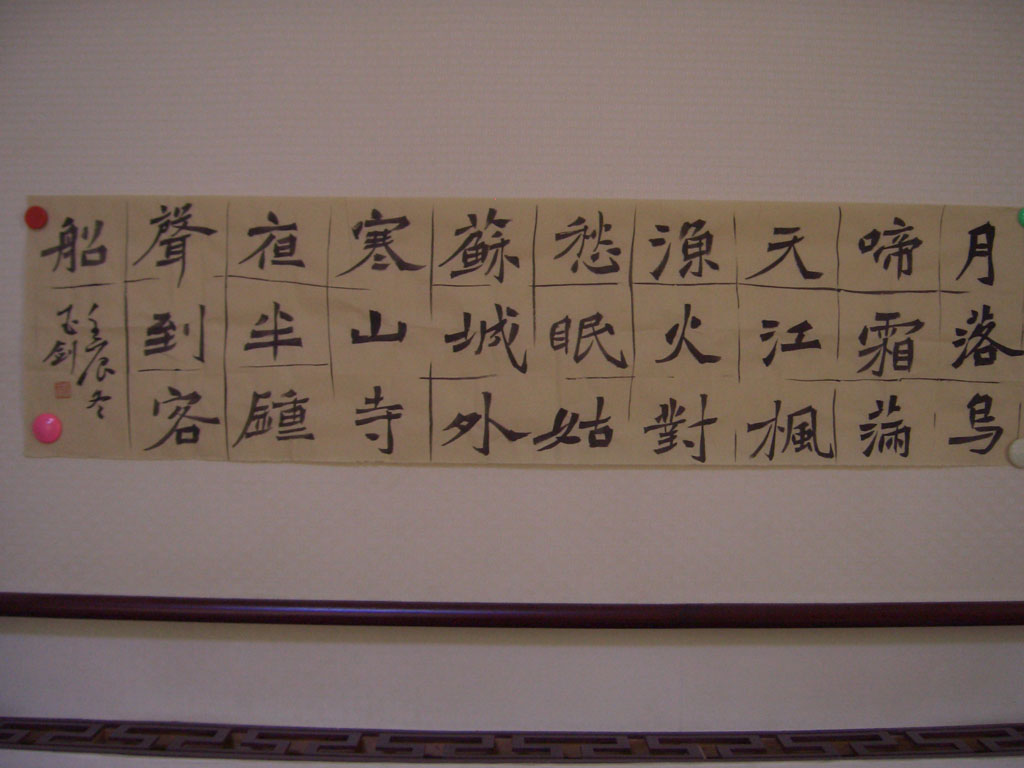 月落烏
啼霜滿
天江楓
漁火對
愁眠姑
蘇城外
寒山寺
夜半鍾
聲到客
船
壬辰冬
玉剑